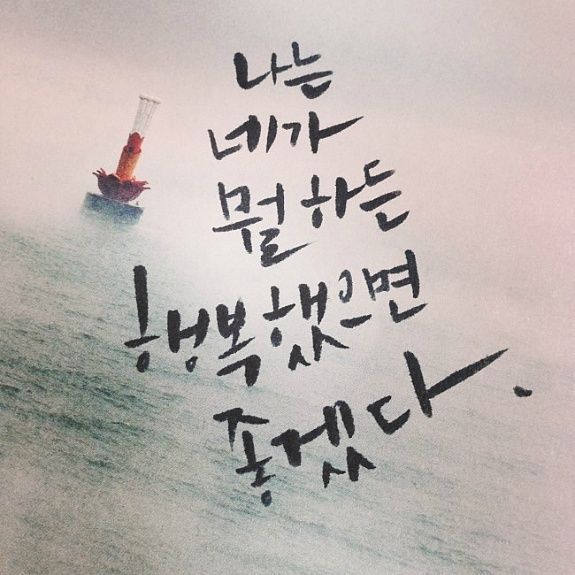 나는
네가
뭘 하든
행복했으면
좋겠다.